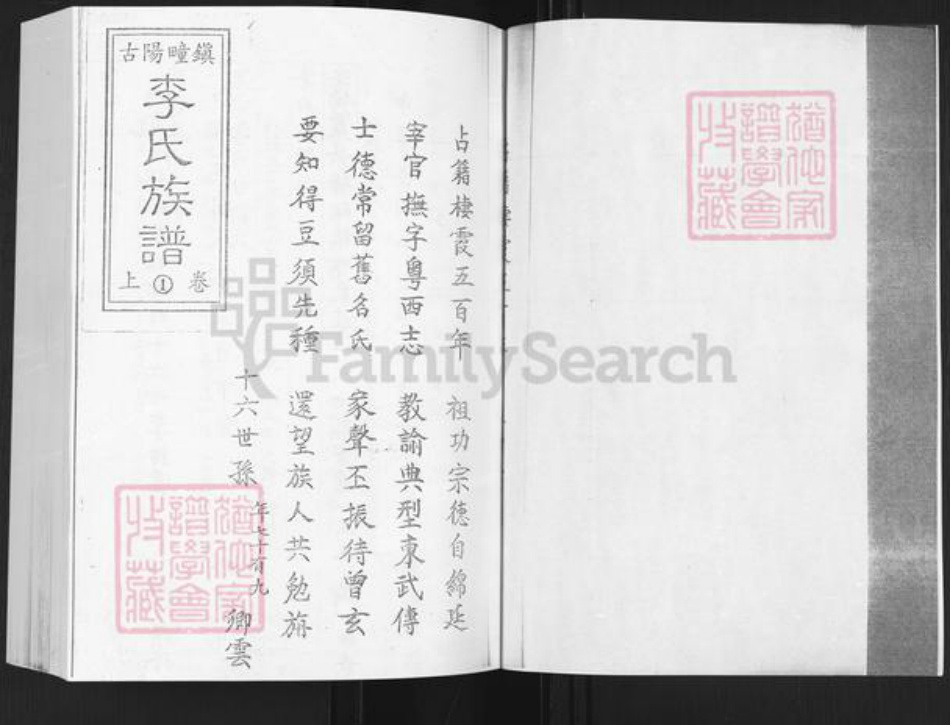 古陽疃鎮
李氏族譜
卷①上
占籍棲霞五百年 祖功宗德自綿延
宰官撫字粵西志 教諭典型東武傳
士德常留舊名氏 家聲丕振待曾玄
要知得豆須先種 還望族人共勉旃
十六世孫 年七十有九 卿雲
猶他家譜學會收藏
猶他家譜學會收藏
FamilySearch